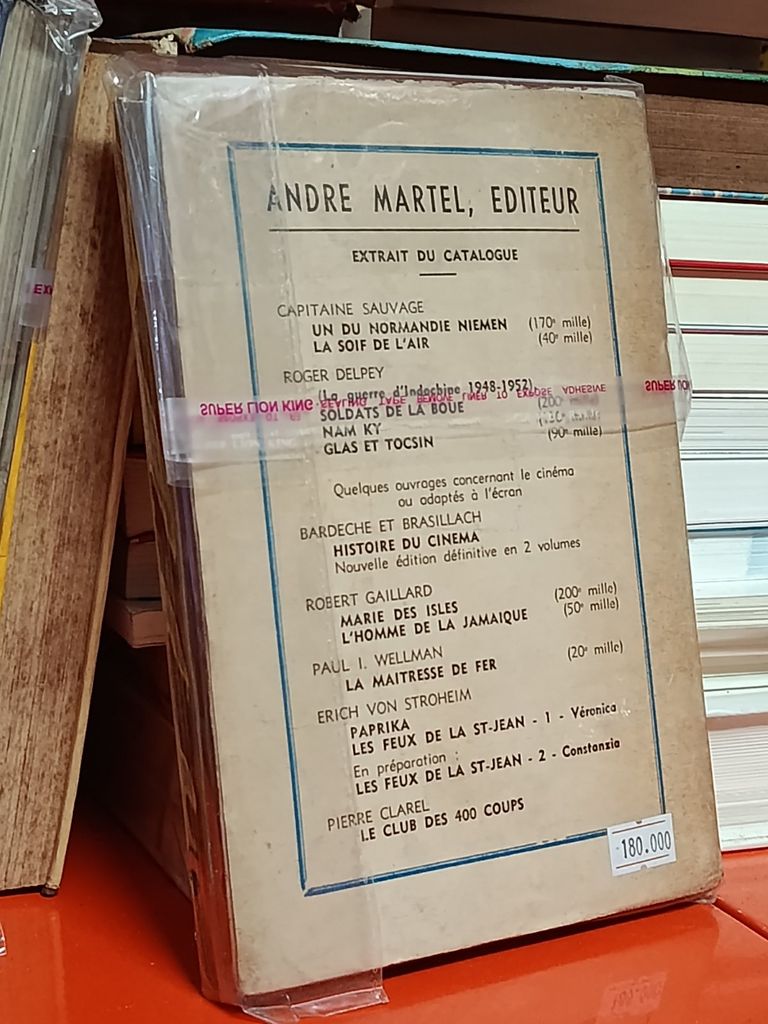 ANDRE MARTEL, EDITEUR
EXTRAIT DU CATALOGUE
CAPITAINE SAUVAGE
UN DU NORMANDIE NIEMEN (170e mille)
LA SOIF DE L'AIR (40e mille)
ROGER DELPEY
(La guerre d'Indochine 1948-1952)
SUPER LION KING SEALING TAPE REMOVE LINER TO EXPOSE ADHESIVE SUPER LION
SOLDATS DE LA BOUE (200e mille)
NAM KY mille)
GLAS ET TOCSIN (90e mille)
Quelques ouvrages concernant le cinéma
ou adaptés à l'écran
BARDECHE ET BRASILLACH
HISTOIRE DU CINEMA
Nouvelle édition définitive en 2 volumes
ROBERT GAILLARD
MARIE DES ISLES (200e mille)
L'HOMME DE LA JAMAIQUE (50e mille)
PAUL I. WELLMAN
LA MAITRESSE DE FER (20e mille)
ERICH VON STROHEIM
PAPRIKA
LES FEUX DE LA ST-JEAN - 1 - Véronica
En préparation :
LES FEUX DE LA ST-JEAN - 2 - Constanzia
PIERRE CLAREL
LE CLUB DES 400 COUPS
180.000